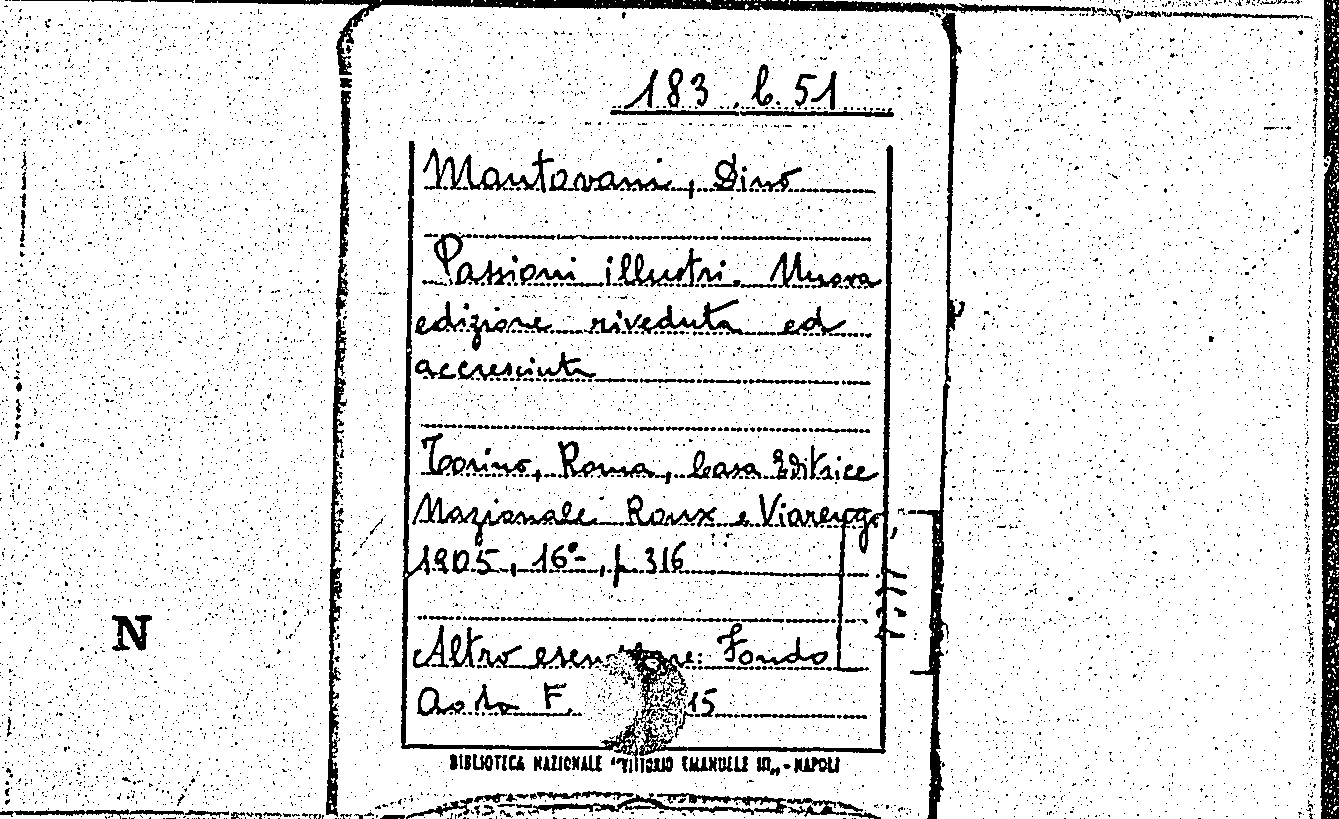 183.b.51
Mantovani, Dino
Passioni illustri. Nuova
edizione riveduta ed
accresciuta
Torino, Roma, Casa Editrice
Nazionale Roux e Viarengo,
1905, 16°-, p 316
N
Altro esemplare: Fondo
Aosta F. 15
BIBLIOTECA NAZIONALE "VITTORIO EMANUELE III" - NAPOLI